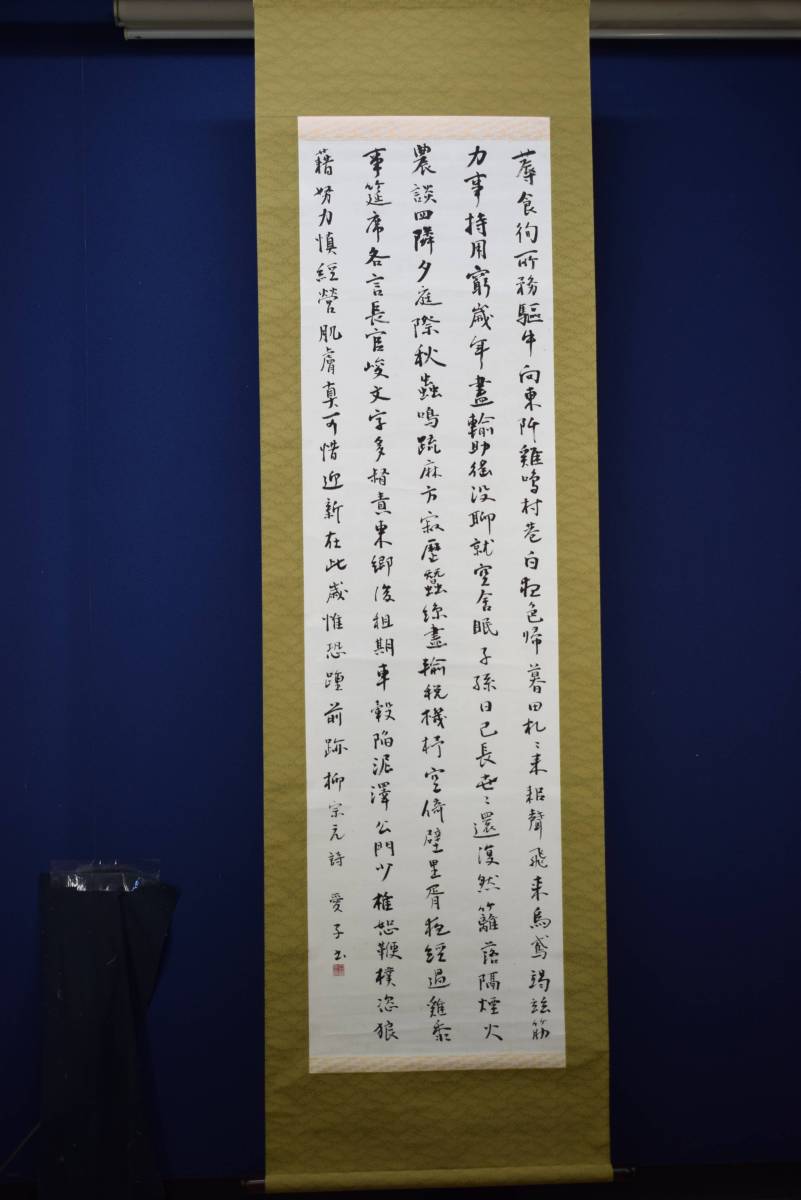 蓐食徇所務驅牛向東阡雞鳴村巷白夜色帰暮田札〻耒耜聲飛来烏鳶竭玆筋
力事持用窮歳年盡輸助徭没聊就空舎眠子孫日已長世〻還復然籬落隔煙火
農談四隣夕庭際秋蟲鳴疏麻方寂歴蠶絲盡輸税機杼空倚壁里胥夜経過雞黍
事筵席各言長官峻文字多督責東郷後租期車轂陥泥澤公門少推恕鞭樸恣狼
藉努力慎経營肌膚真可惜迎新在此歳惟恐踵前跡 柳宗元詩 愛子書